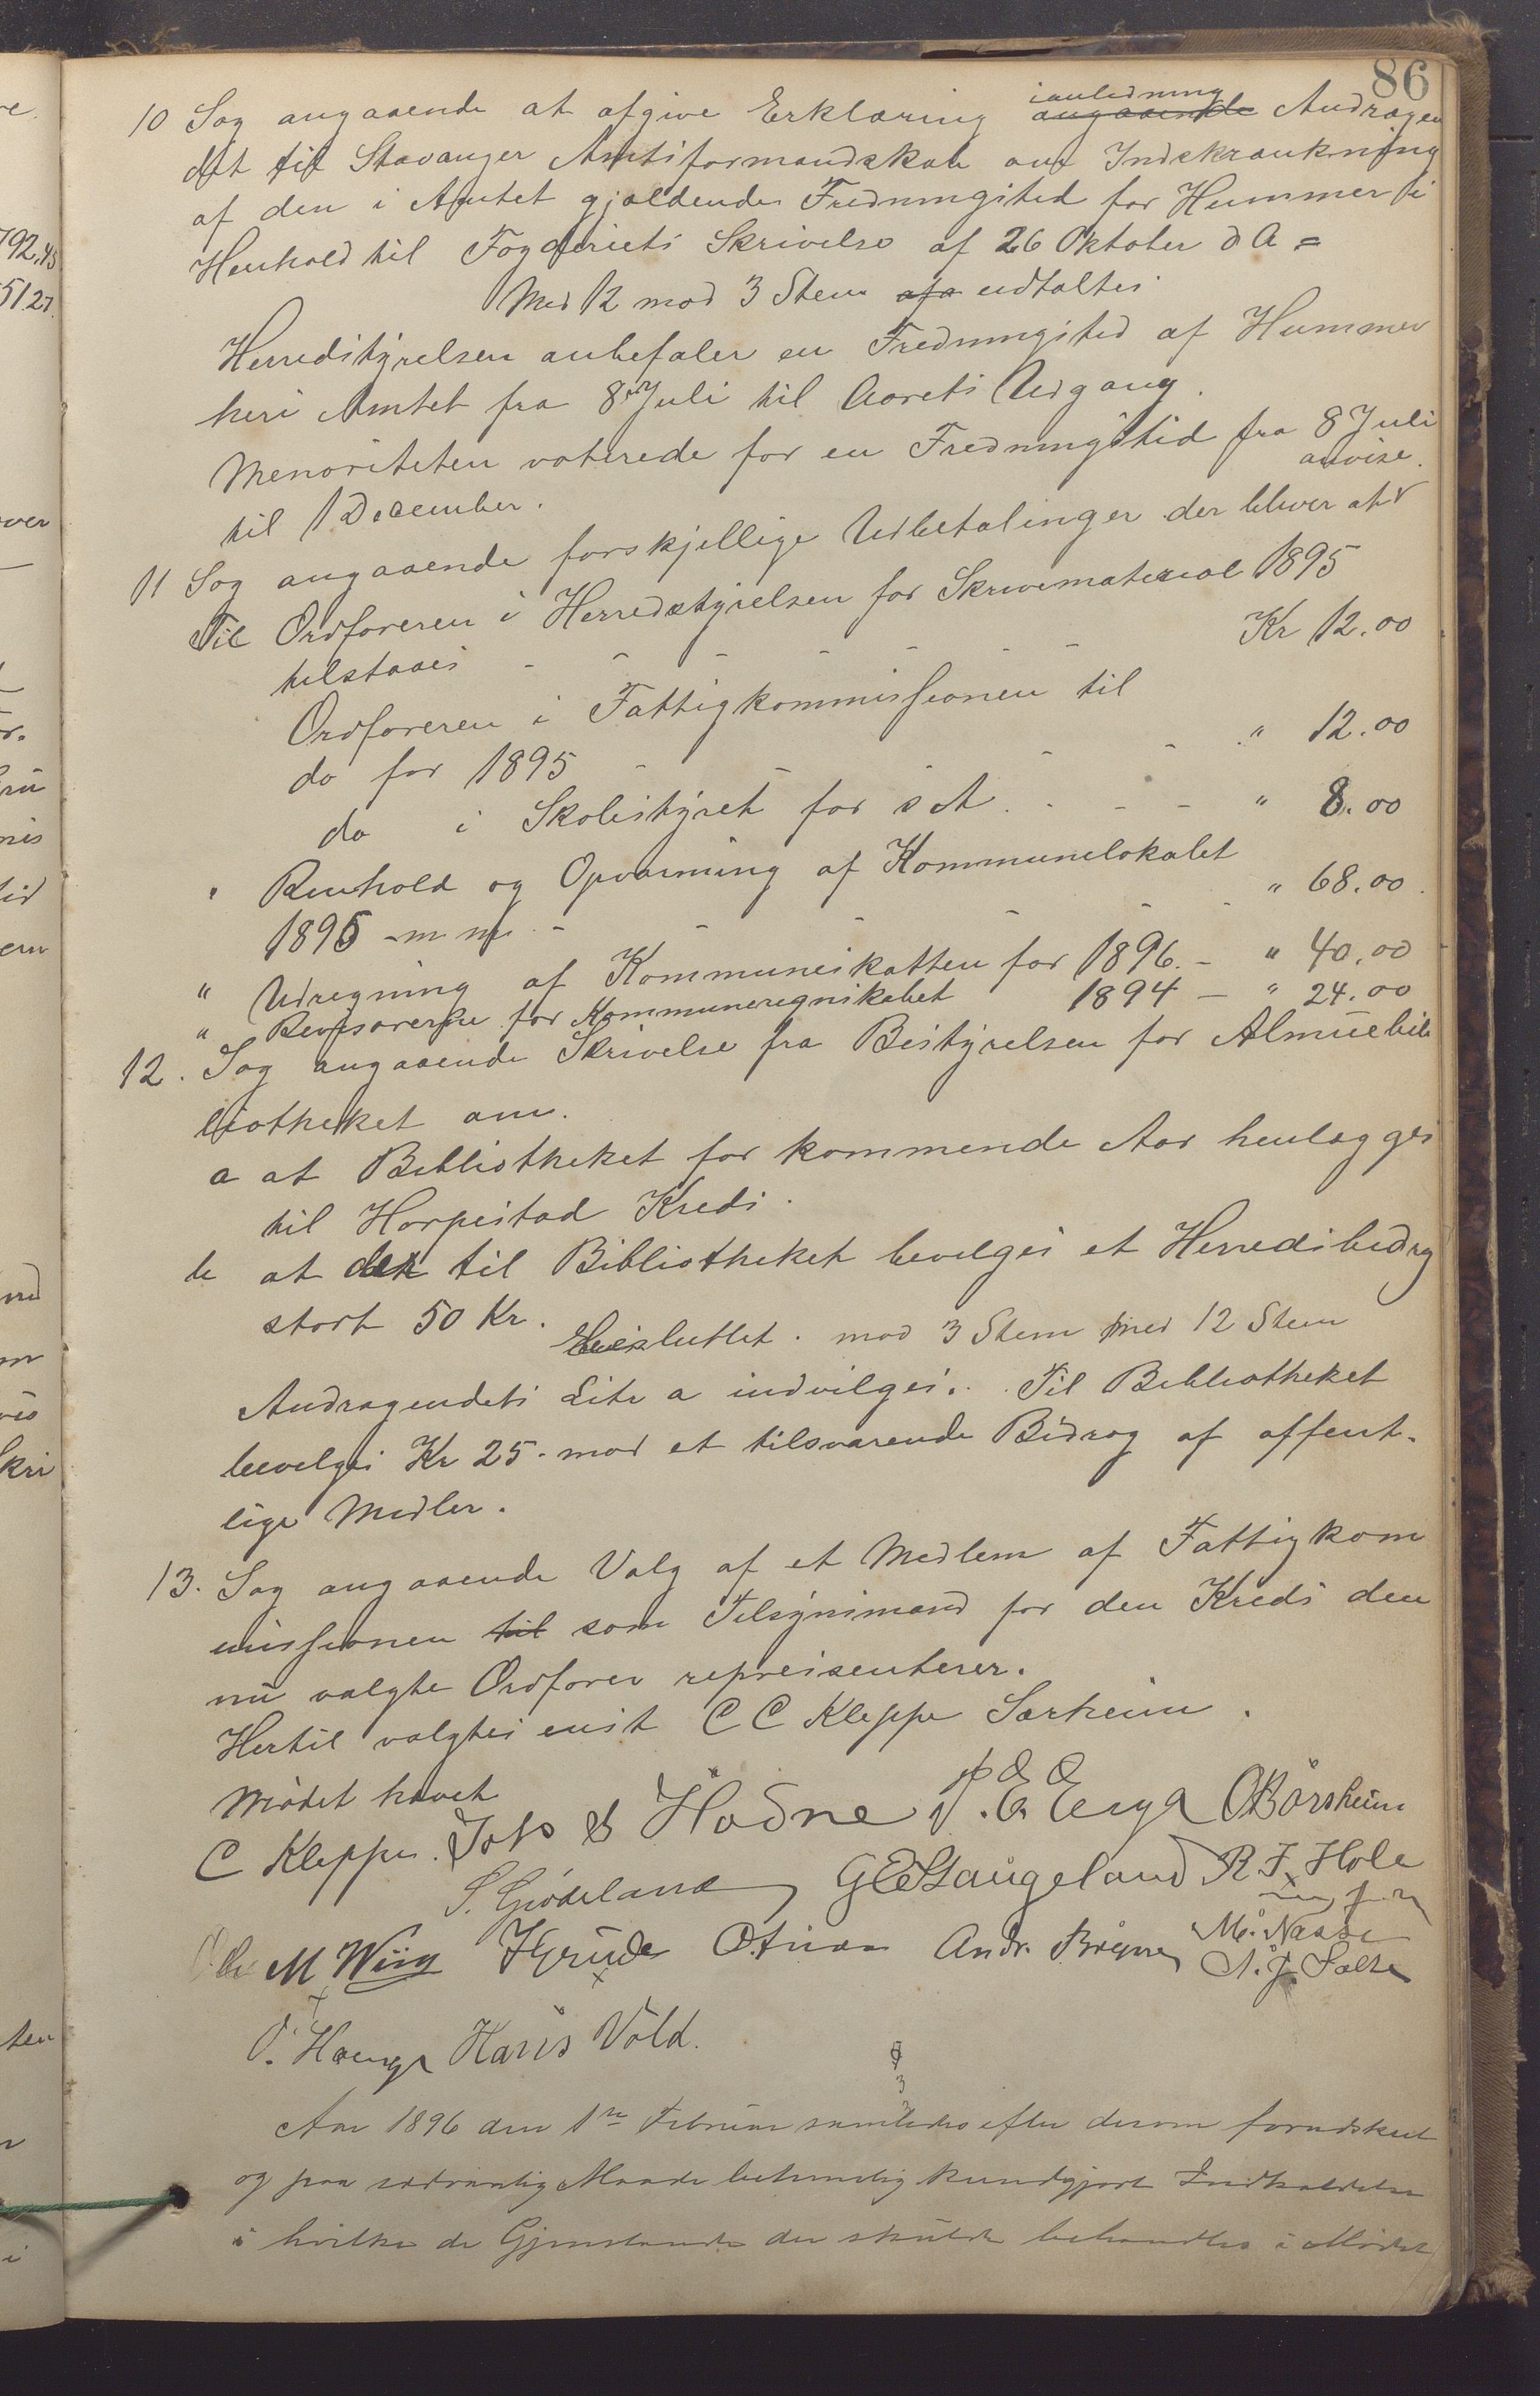 86
10 Sag angaaende at afgive Erklæring angaaende ianledning Andragen
det til Stavanger Amtsformandskab om Indskrænkning
af den i Amtet gjældende Fredningstid for Hummer i
Henhold til Fogderiets Skrivelse af 26 Oktober d A =
Med 12 mod 3 Stem udtaltes
Herredstyrelsen anbefaler en Fredningstid af Hummer
heri Amtet fra 8 Juli til Aarets Udgang.
Menoriteten voterede for en Fredningstid fra 8 Juli
til 1 December.
11 Sag angaaende forskjellige Udbetalinger der bliver at anvise.
Til Ordføreren i Herredstyrelsen for Skrivematerial 1895
tilstaaes - - - - - - Kr 12.00
Ordføreren i Fattigkommissionen til
do for 1895 - - - - " 12.00
do i Skolestyret for s A. - - - " 8.00
" Renhold og Opvarming af Kommunelokalet
1895 - m m. - - - - - - " 68.00
" Udregning af Kommuneskatten for 1896. - " 40.00
" Revisorerne for Kommuneregnskabet 1894 - " 24.00
12. Sag angaaende Skrivelse fra Bestyrelsen for Almuebib
liotheket om.
a at Bibliotheket for kommende Aar henlægges
til Horpestad Kreds.
b at der til Bibliotheket bevilges et Herredsbidrag
stort 50 Kr.
Besluttet. mod 3 Stem med 12 Stem
Andragendets Lite a indvilges. Til Bibliotheket
bevilges Kr 25. mod et tilsvarende Bidrag af offent-
lige Midler.
13. Sag angaaende Valg af et Medlem af Fattigkom
missionen til som Tilsynsmand for den Kreds den
nu valgte Ordfører repreisenterer.
Hertil valgtes enst C C Kleppe Særheim.
Mødet hævet
C Kleppe. Hodne Erga O Børsheim
S. Gjødeland G E Haugeland R. T. Hole
M Wiig H Grude Andr. Bryne M. Næsse
Hans Vold.
Aar 1896 den 1ste Februar samledes efter derom forudskeet
og paa sædvanlig Maade betimelig kundgjort Indkaldelse
i hvilke de Gjenstande der skulde behandles i Mødet